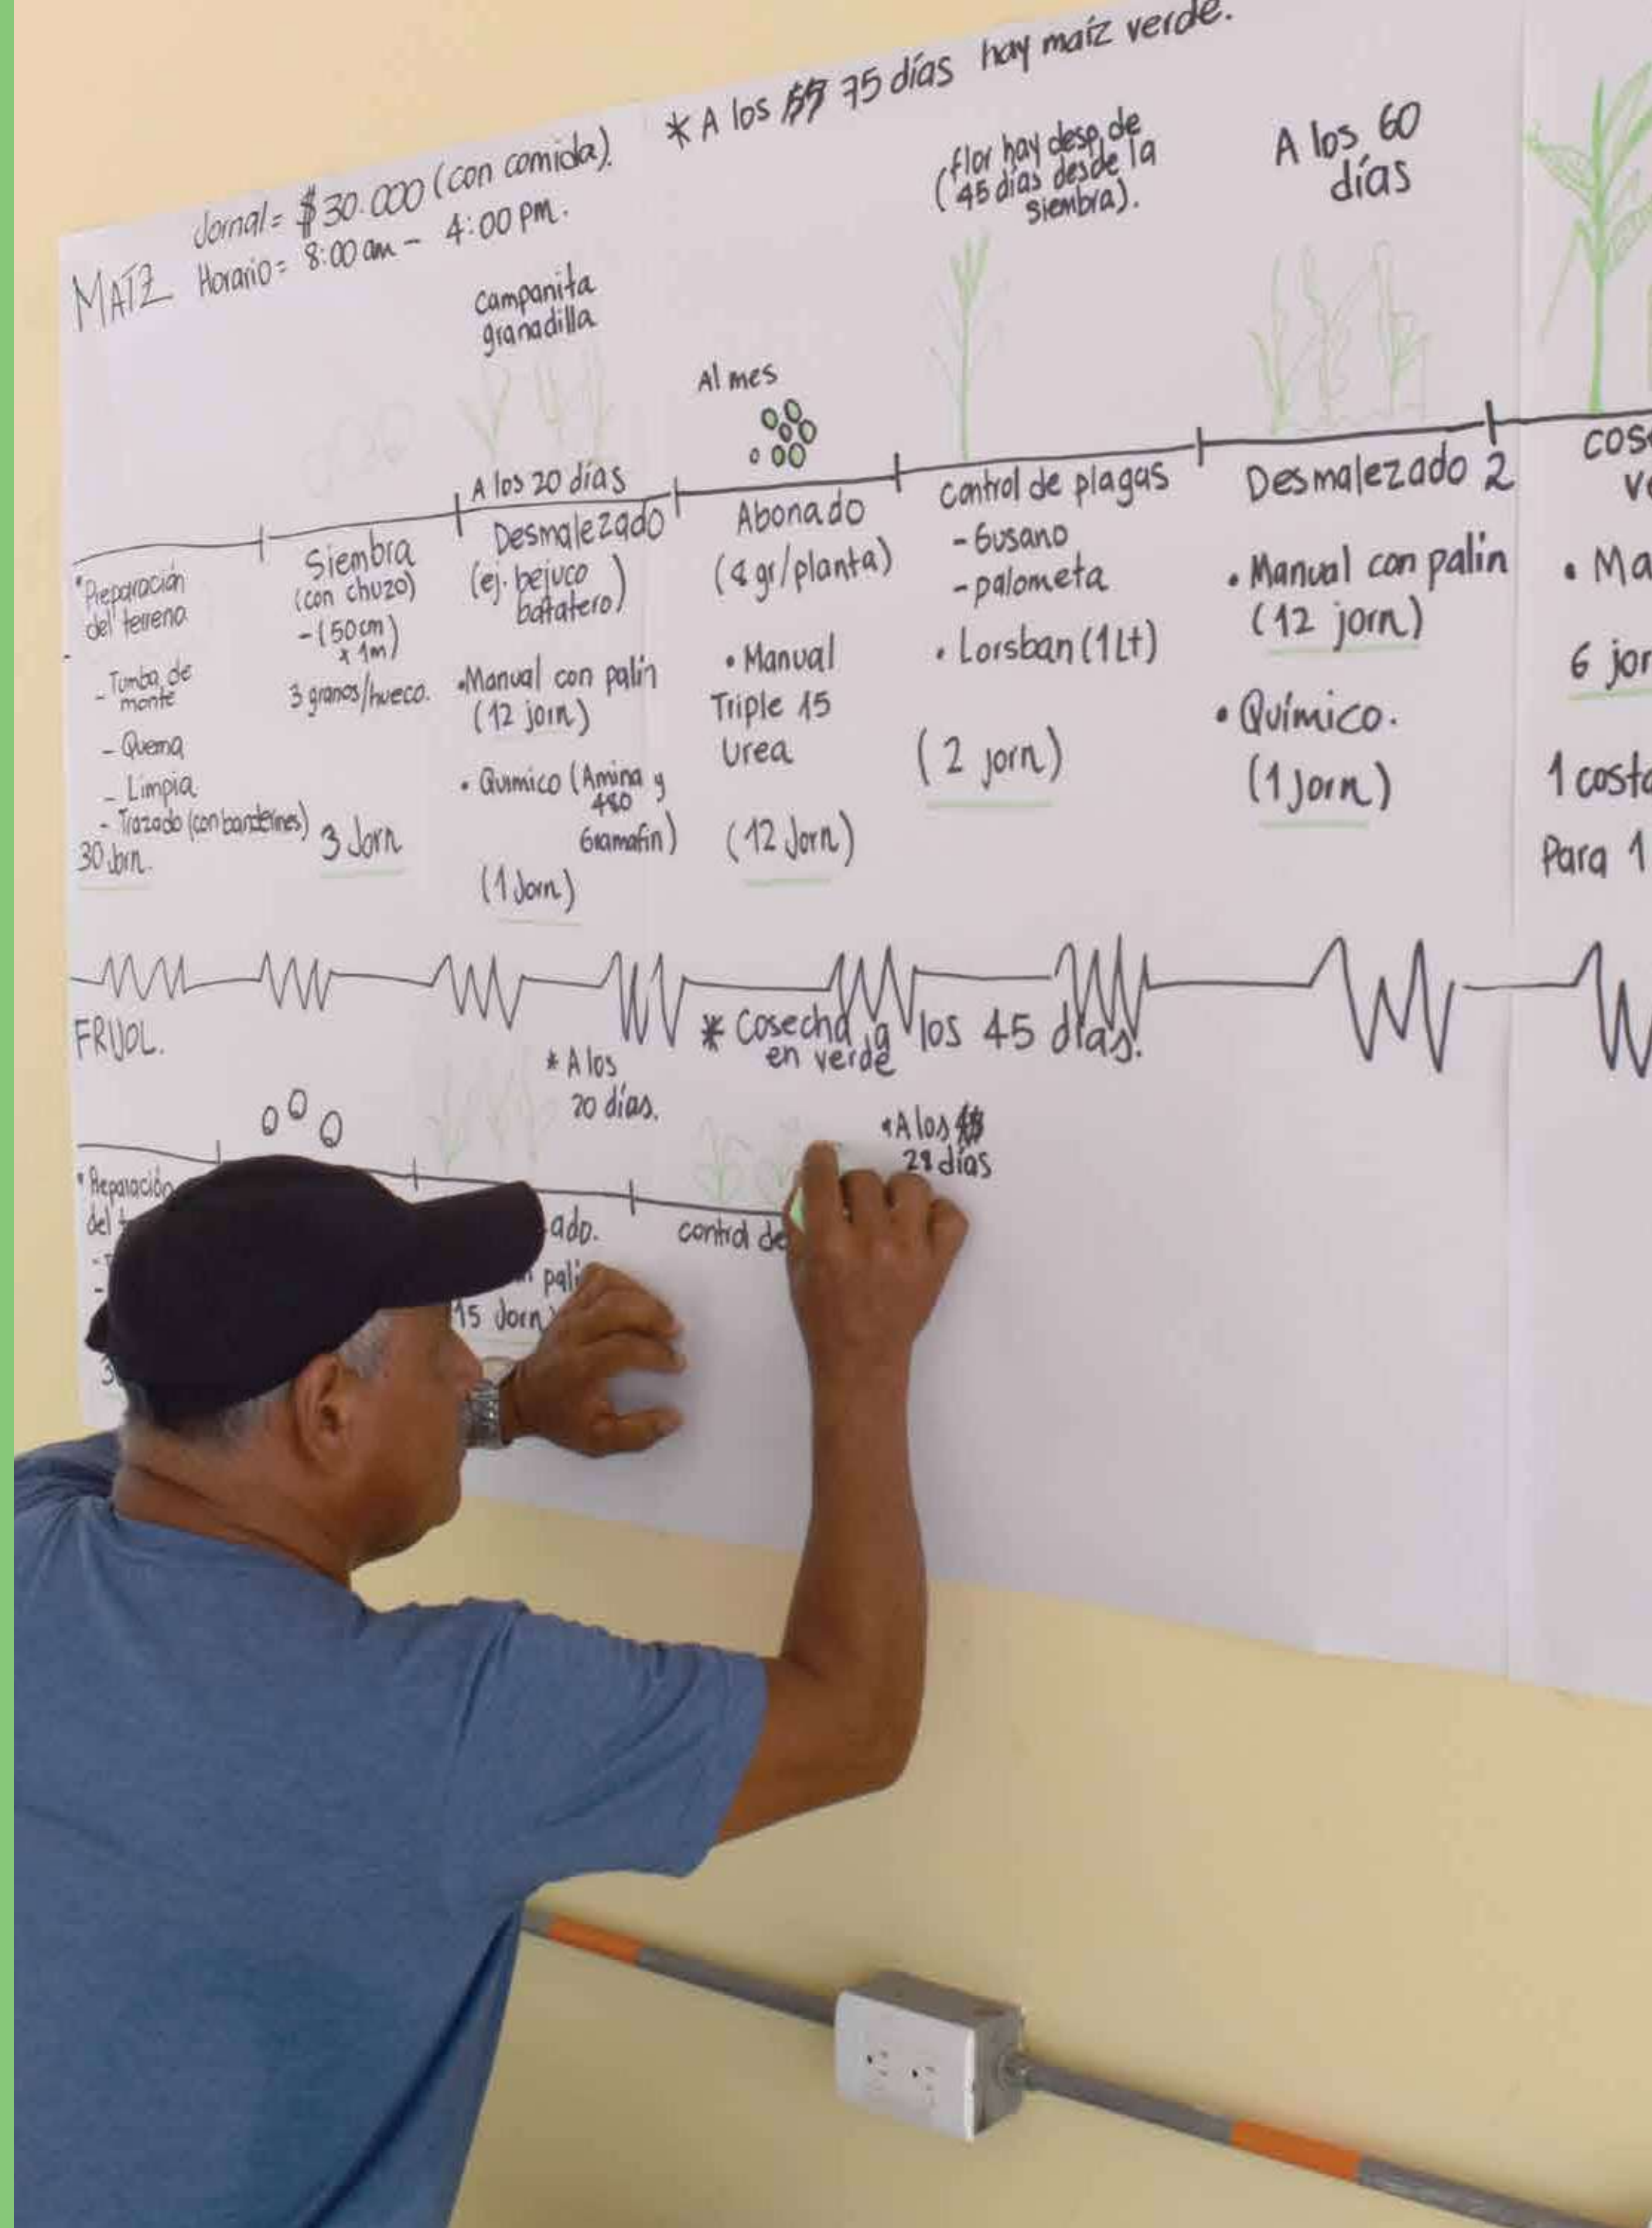 * A los 75 días hay maíz verde.
Jornal = $30.000 (con comida).
Horario = 8:00 am - 4:00 pm.
MAÍZ
Campanita
granadilla
Al mes
(flor hay desp. de
45 días desde la
siembra).
A los 60
días
• Preparación
del terreno
- Tumba de
monte
- Quema
- Limpia
- Trazado (con banderines)
30 Jorn.
Siembra
(con chuzo)
- (50 cm
x 1m)
3 granos/hueco.
3 Jorn
A los 20 días
Desmalezado
(ej. bejuco
batatero)
• Manual con palín
(12 jorn)
• Químico (Amina y
480
Gramafin)
(1 Jorn)
Abonado
(4 gr/planta)
• Manual
Triple 15
Urea
(12 Jorn)
Control de plagas
- Gusano
- palometa
• Lorsban (1 Lt)
(2 jorn)
Desmalezado 2
• Manual con palin
(12 jorn)
• Químico.
(1 Jorn)
6
1
Para 1
FRIJOL.
* Cosecha a los 45 días.
en verde
* A los
20 días.
* A los
28 días
• Preparación
del
ado.
15 Jorn
control de